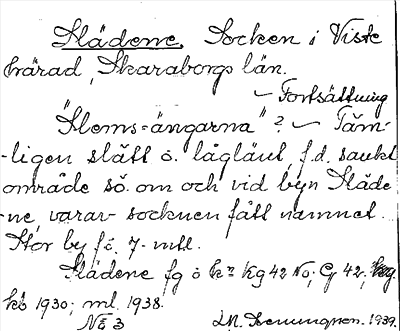 Slädene, Socken i Viste
härad, Skaraborgs län.
– Fortsättning
"Slems-ängarna"? – Täm-
-ligen slätt o. låglänt, f.d. sankt
område sö. om och vid byn Släde
-ne, varav socknen fått namnet.
Stor by fö. 7-mtl.
Slädene fg o kr Kg 42 No; Cg 42,
kb 1930; ml. 1938.
No 3
1939.